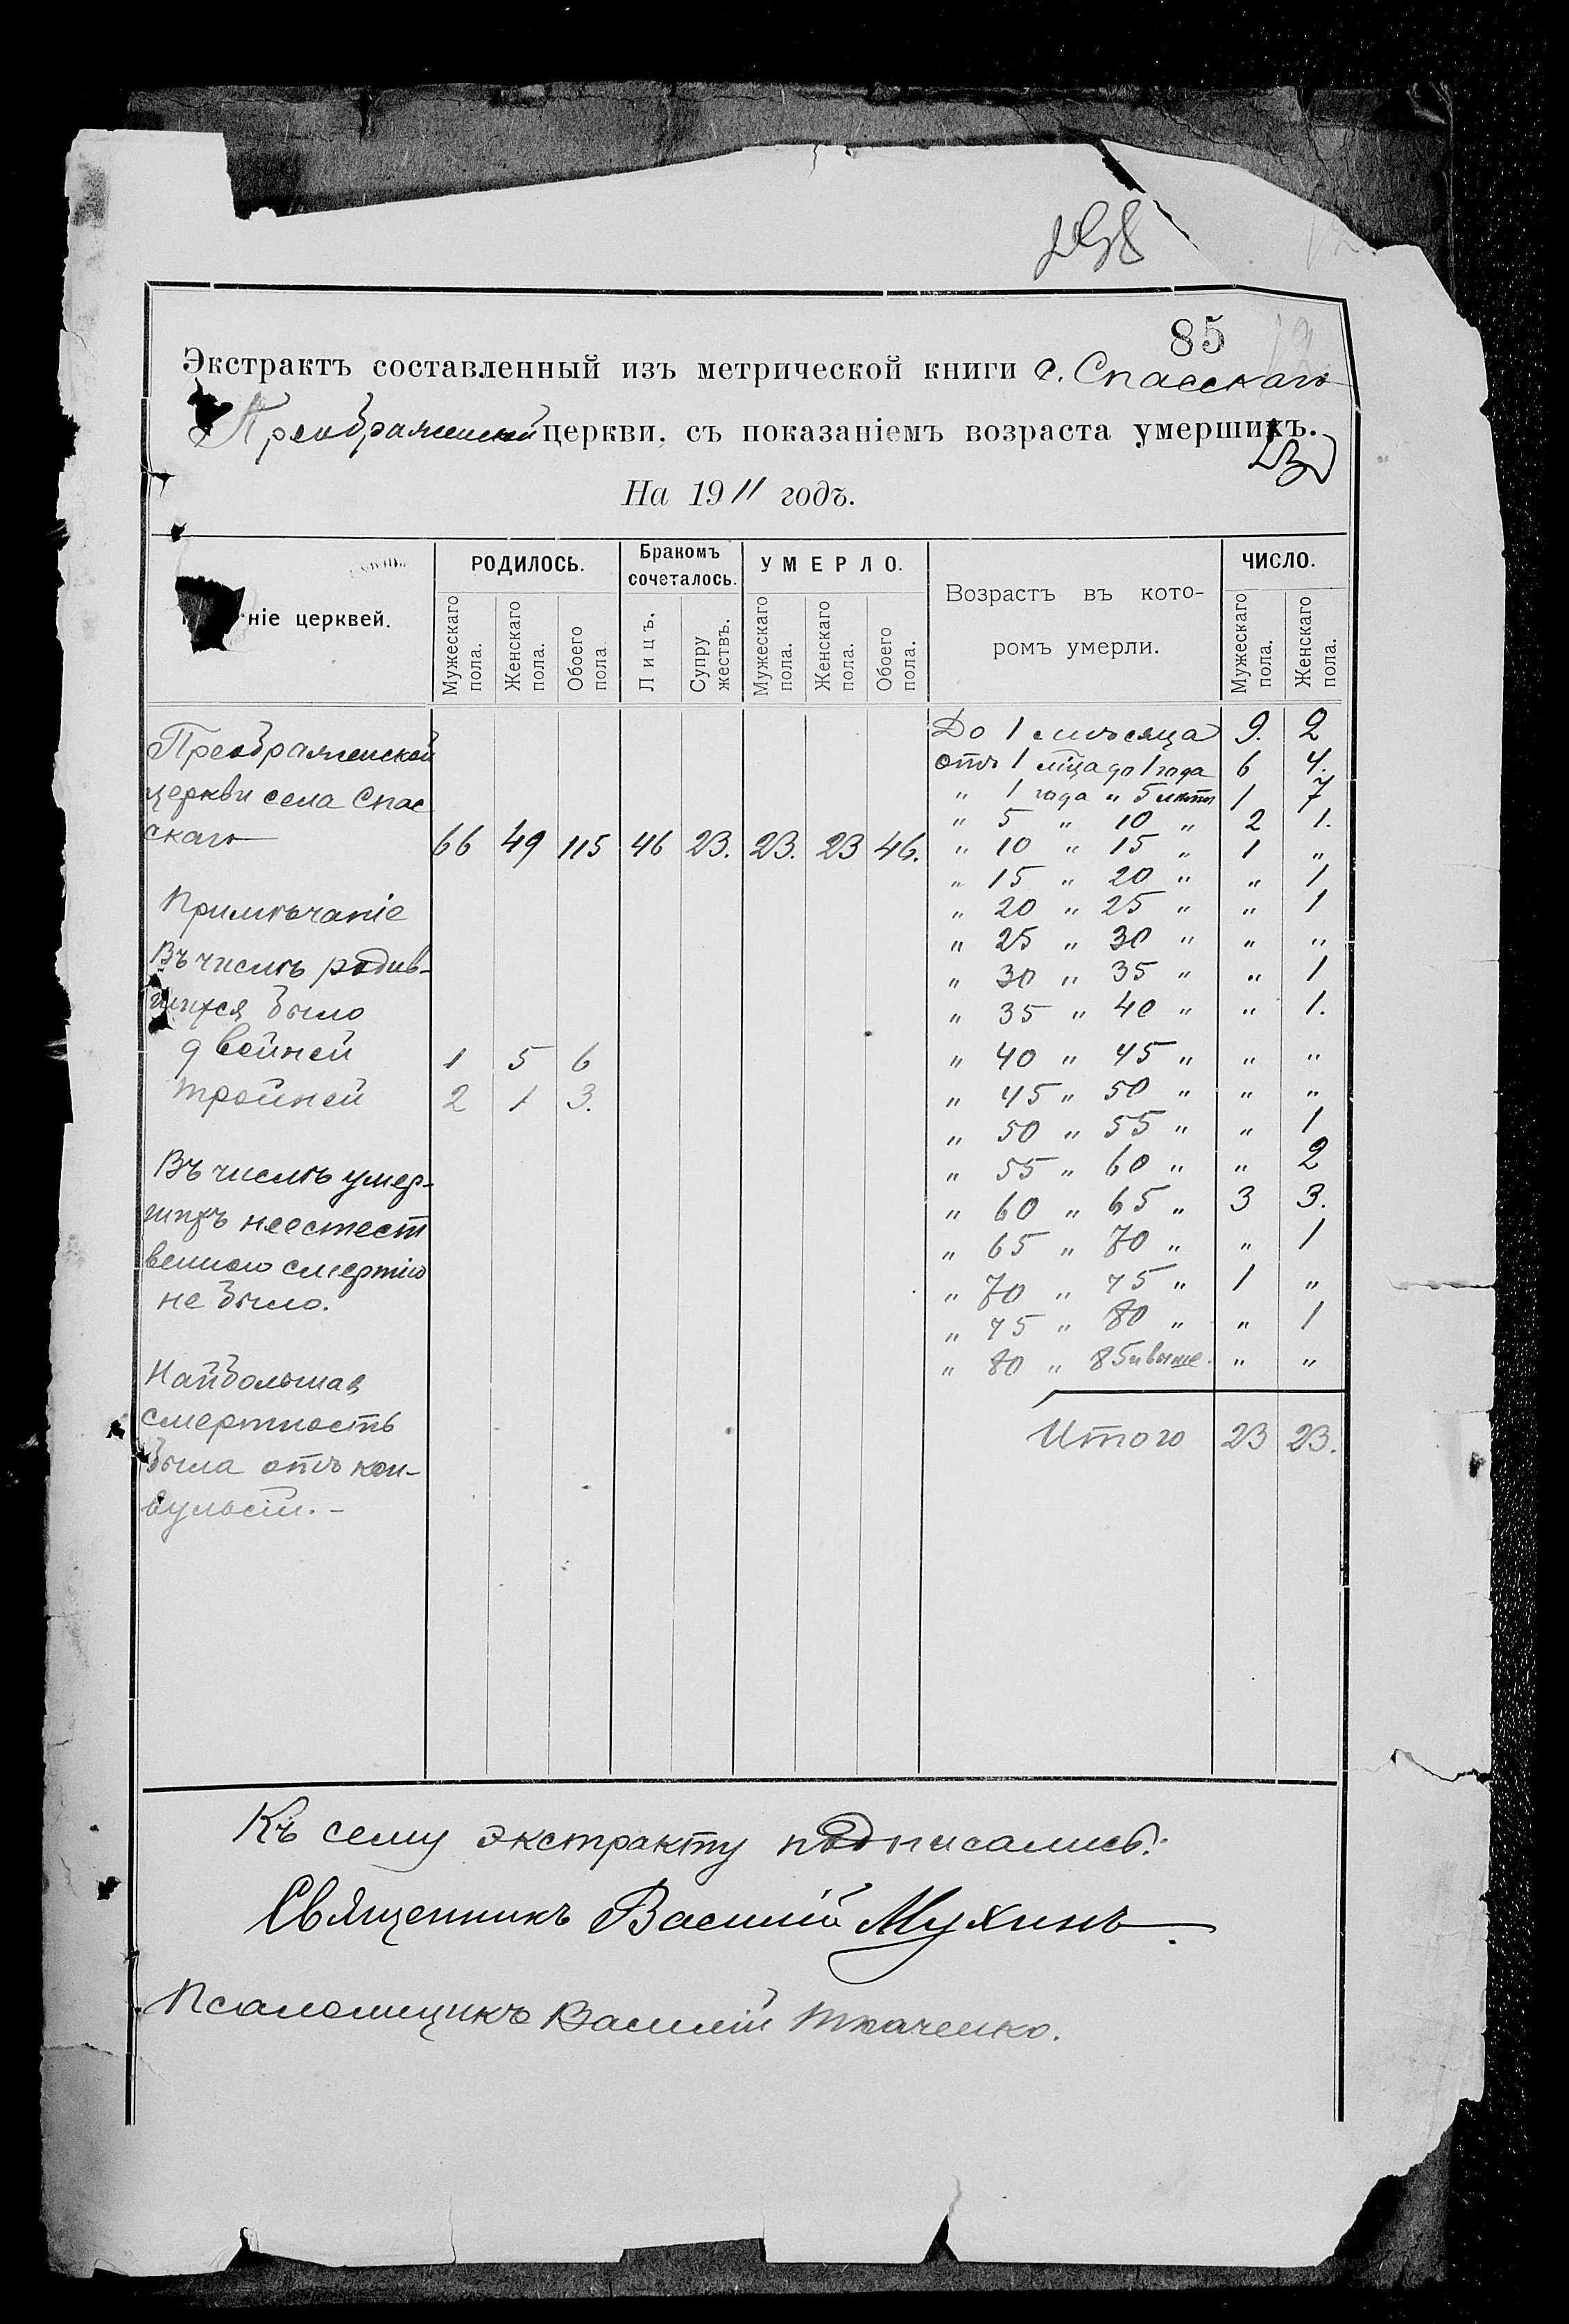 85
Экстрактъ составленный изъ метрической книги с. Спасскаго
Преображенской церкви, съ показаніемъ возраста умершихъ.
На 1911 годъ.
ніе церквей.
РОДИЛОСЬ.
Бракомъ
сочеталось.
УМЕРЛО.
Возрастъ въ кото-
ромъ умерли.
ЧИСЛО.
Мужескаго пола.
Женскаго пола.
Обоего пола.
Лицъ.
Супружествъ.
Мужескаго пола.
Женскаго пола.
Обоего пола.
Мужескаго пола.
Женскаго пола.
Преображенской
церкви села Спас
скаго 66 49 115 46 23. 23. 23 46.
Примѣчаніе
Въ числѣ родив-
шихся было
двойней 1 5 6
тройней 2 1 3.
Въ числѣ умер-
шихъ неестест
венною смертію
не было.
Наибольшая
смертность
была отъ кон-
вульсіи. -
До 1 мѣсяца 9. 2
отъ 1 мѣца до 1 года 6 4.
" 1 года " 5 лѣтъ 1 7
" 5 " 10 " 2 1.
" 10 " 15 " 1 "
" 15 " 20 " " 1
" 20 " 25 " " 1
" 25 " 30 " " "
" 30 " 35 " " 1
" 35 " 40 " " 1.
" 40 " 45 " " "
" 45 " 50 " " "
" 50 " 55 " " 1
" 55 " 60 " " 2
" 60 " 65 " 3 3.
" 65 " 70 " " 1
" 70 " 75 " 1 "
" 75 " 80 " " 1
" 80 " 85 и выше. " "
Итого 23 23.
Къ сему экстракту подписались:
Священникъ Василій Мухинъ.
Псаломщикъ Василій Ткаченко.